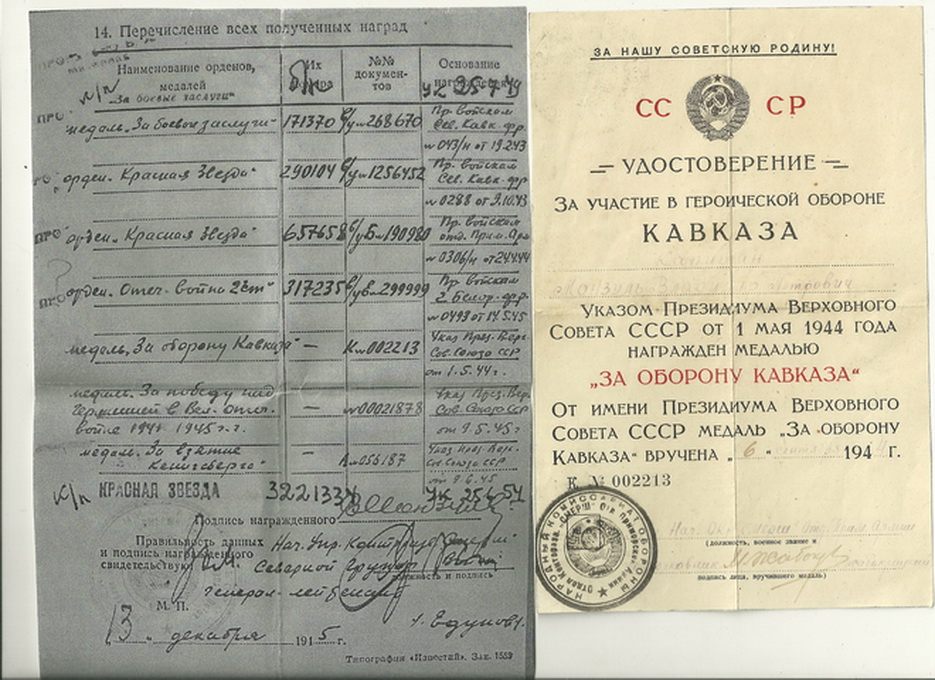 14. Перечисление всех полученных наград
Наименование орденов, медалей
Их
№№ документов
Основание
к/п
"За боевые заслуги"
УК 25.7.49
медаль "За боевые заслуги" 171370 б/у№268670 Пр. войскам Сев. Кавк. фр. №043/н от 19.2.43
орден "Красная Звезда" 290104 б/у№1256452 Пр. войскам Сев. Кавк. фр №0288 от 9.10.43
орден "Красная Звезда" 657658 б/у Б№190980 Пр. войскам отд. Прим. Арм №0306/н от 24.4.44
орден "Отеч. Война 2 ст" 317235 299999 Пр. войскам 2 Белор. фр. №0493 от 14.5.45
медаль "За оборону Кавказа" — К№002213 Указ През. Верх Сов. Союза ССР от 1.5.44г.
медаль "За победу над Германией в Вел. Отеч. войне 1941-1945 г.г. — №00021878 Указ През. Вер Сов. Союза ССР от 9.5.45г
медаль "За взятие Кенигсберга" — А№055187 Указ През. Верх. Сов. Союза ССР от 9.6.45
к/п КРАСНАЯ ЗВЕЗДА 3221334 УК 25.6.54
Подпись награжденного
Правильность данных
и подпись награжденного
свидетельствую:
Нач. Упр. Контрразв.
Северной Группы
должность и подпись
генерал-лейтенант
М. П.
"13" декабря 1945 г.
Типография «Известий». Зак. 1559
ЗА НАШУ СОВЕТСКУЮ РОДИНУ!
СС СР
— УДОСТОВЕРЕНИЕ —
ЗА УЧАСТИЕ В ГЕРОИЧЕСКОЙ ОБОРОНЕ
КАВКАЗА
Капитан
Петрович
Указом Президиума Верховного
Совета СССР от 1 мая 1944 года
НАГРАЖДЕН МЕДАЛЬЮ
„ЗА ОБОРОНУ КАВКАЗА“
От имени Президиума Верховного
Совета СССР медаль „За оборону
Кавказа“ вручена „6“ 194 г.
К № 002213
НАРОДНЫЙ КОМИССАРИАТ ОБОРОНЫ
"СМЕРШ"
(должность, военное звание и
подпись лица, вручившего медаль)